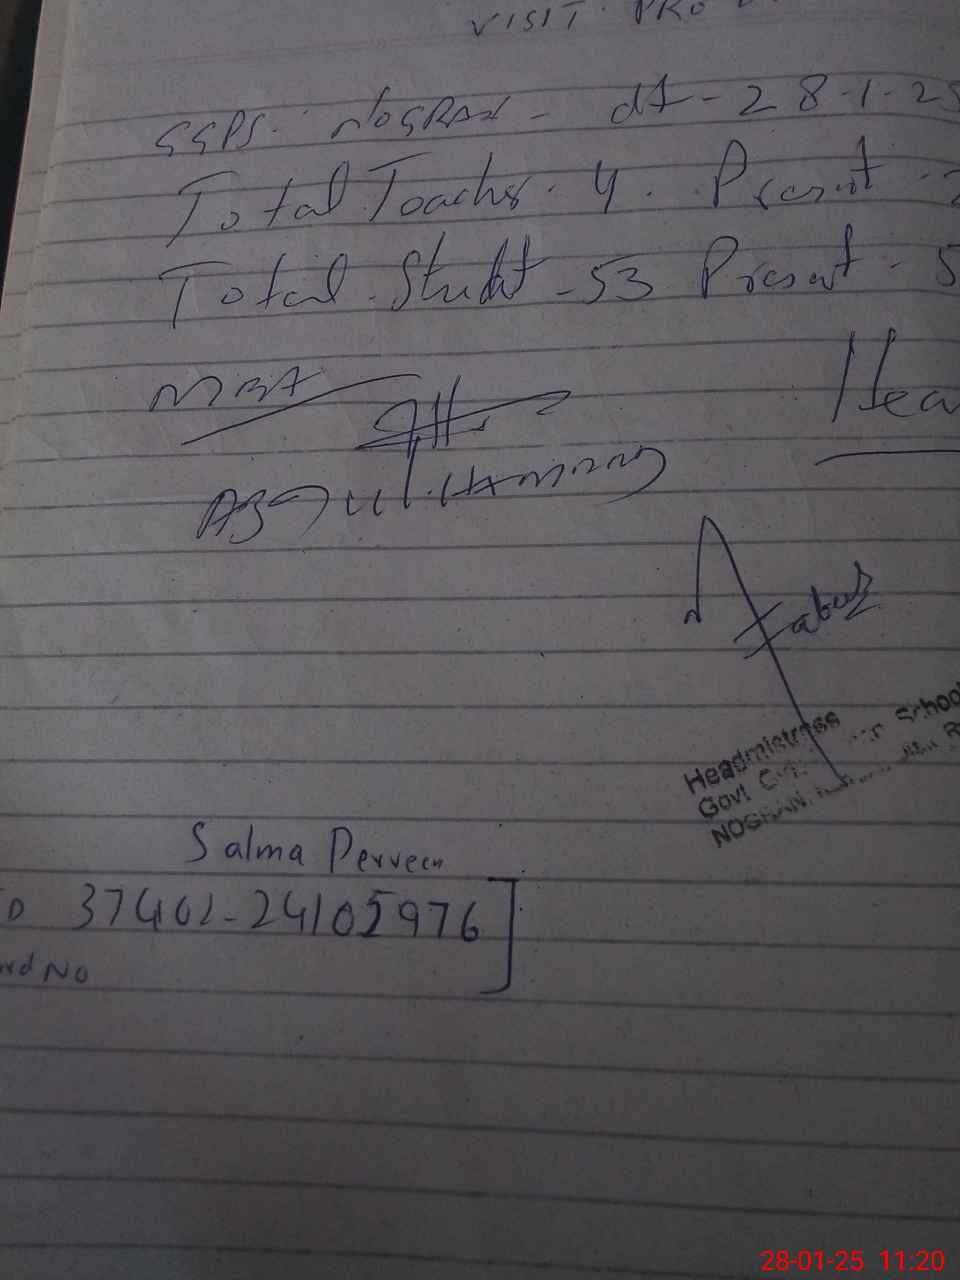 VISIT. PRO
GGPS. NOGRAN - dt - 28-1-25
Total Teacher. 4. Present -
Total Student - 53 Present - 5
MEA
Hea
Headmistress
Govt School
NOGRAN
Salma Perveen
D 37401-24105976
rd No
28-01-25 11:20